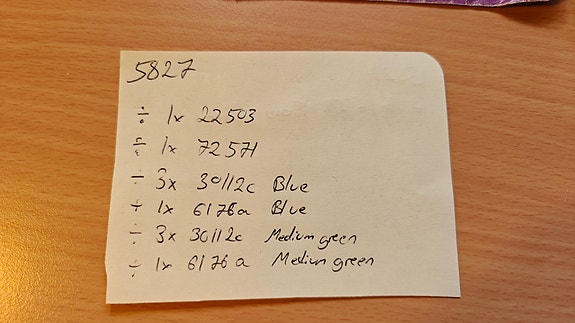 5827
÷ 1x 22503
÷ 1x 72571
÷ 3x 30112c Blue
÷ 1x 6176a Blue
÷ 3x 30112c Medium green
÷ 1x 6176a Medium green